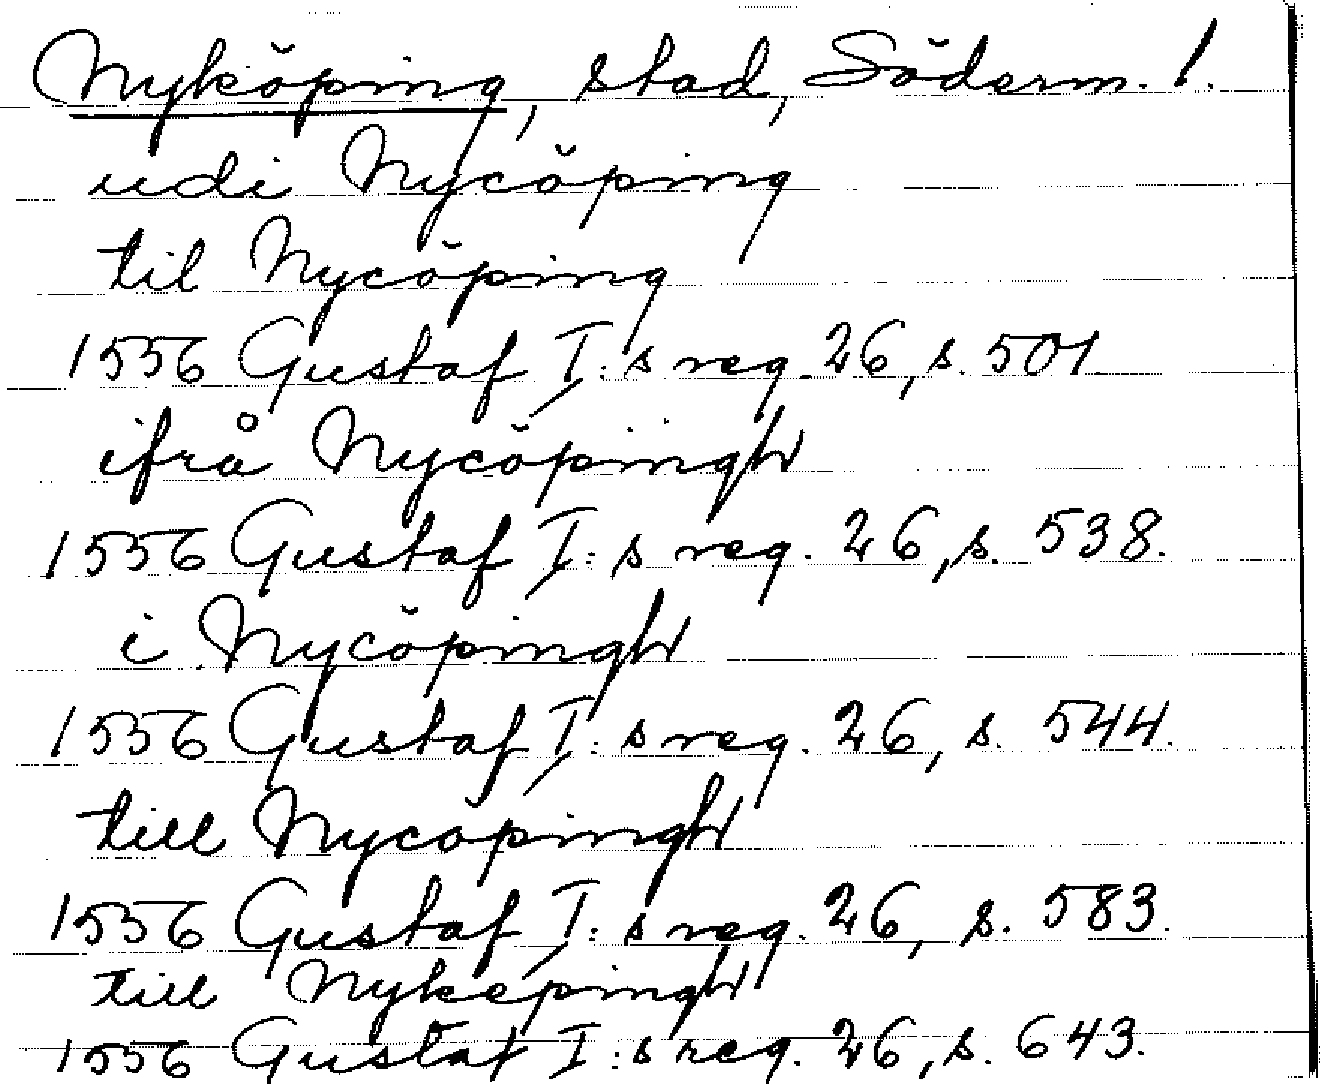 Nyköping, stad, Söderm. l.
udi Nycöping
til Nycöping
1556 Gustaf I:s reg. 26, s. 501
ifrå Nycöpingh
1556 Gustaf I:s reg. 26, s. 538.
i Nycöpingh
1556 Gustaf I:s reg. 26, s. 544.
till Nycöpingh
1556 Gustaf I:s reg. 26, s. 583.
till Nykepingh
1556 Gustaf I:s reg. 26, s. 643.